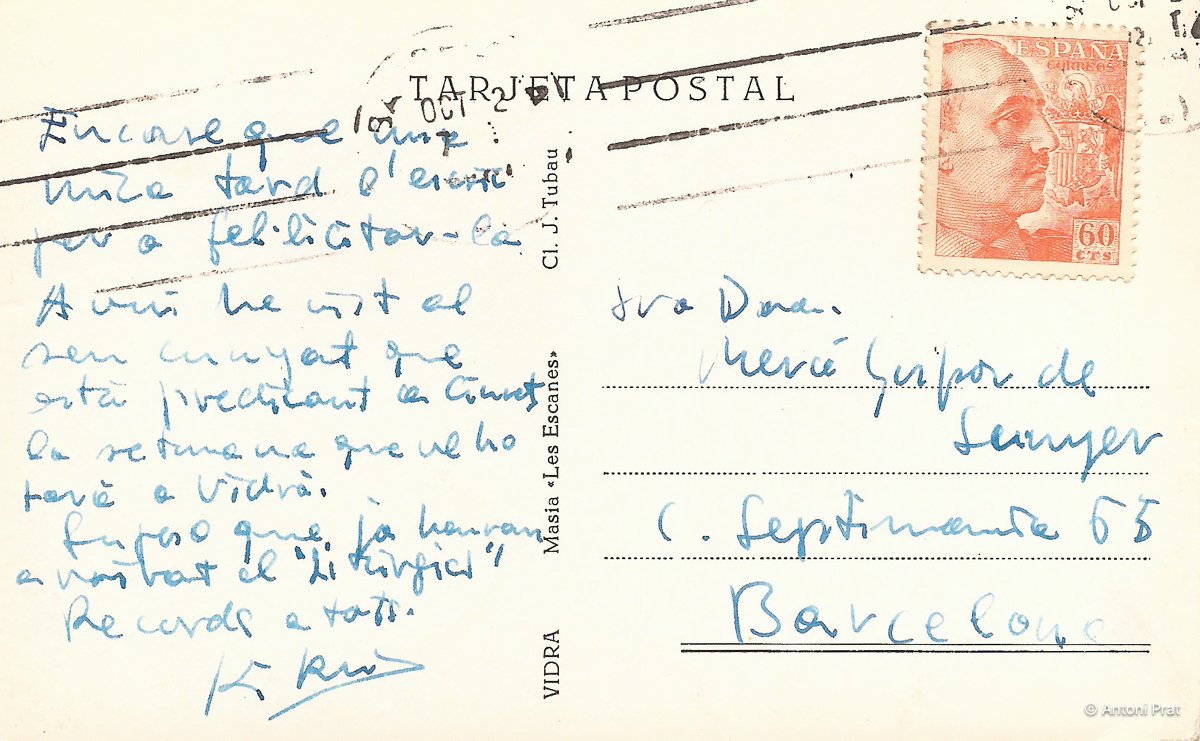 TARJETA POSTAL
OCT 2
Encare que una
mica tard l'escric
per a felicitar-la
Avui he vist al
seu cunyat que
està predicant a
la setmana que ve ho
farà a Vidrà.
Suposo que ja hauran
arribat el "Litúrgics"
Records a tots.
VIDRA Masia «Les Escanes» Cl. J. Tubau
ESPAÑA
CORREOS
60
CTS
Sra Dona.
Mercè de
Sunyer
C. Septimania 65
Barcelona
© Antoni Prat